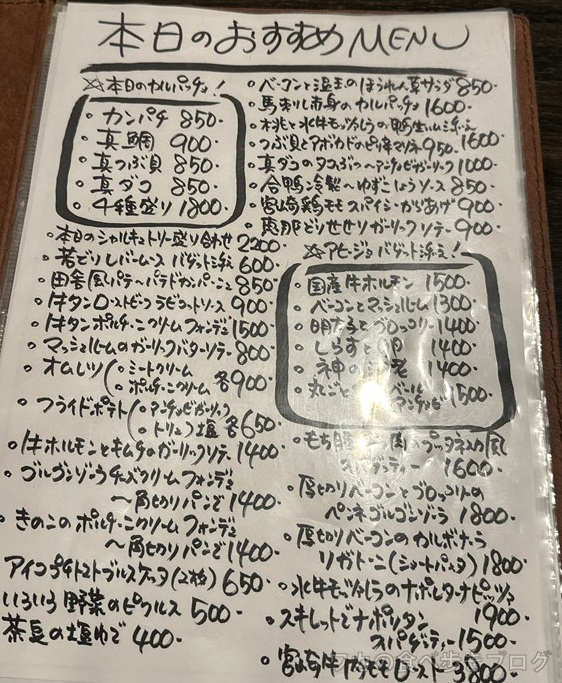 本日のおすすめMENU
☆本日のカルパッチョ!
・カンパチ 850.
・真鯛 900.
・真つぶ貝 850.
・真ダコ 850.
・4種盛り 1800.
・本日のシャルキュトリー盛り合わせ 2200.
・若どりレバームース バゲット添え 600.
・田舎風パテ〜パテドカンパーニュ 850.
・牛タンローストビーフ ラビゴットソース 900.
・牛タンポルチーニクリームフォンデュ 1500.
・マッシュルームのガーリックバターソテー 800.
・オムレツ(・ミートクリーム
・ポルチーニクリーム 各900.
・フライドポテト(・アンチョビガーリック
・トリュフ塩 各650.
・牛ホルモンとキムチのガーリックソテー 1400.
・ゴルゴンゾーラチーズクリームフォンデュ
〜角切りパンで 1400.
・きのこのポルチーニクリームフォンデュ
〜角切りパンで 1400.
アイコプチトマトブルスケッタ(2枚) 650.
いろいろ野菜のピクルス 500.
茶豆の塩ゆで 400.
・ベーコンと温玉のほうれん草サラダ 850.
・馬刺し赤身のカルパッチョ 1600.
・桃と水牛モッツァレラの 生ハム添え 1600.
・つぶ貝とアボカドの マリネ 950.
・真ダコのタコぶつ〜アンチョビガーリック 1000.
・合鴨冷製〜ゆずこしょうソース 850.
・宮崎鶏モモスパイシーからあげ 900.
・恵那どりせせりガーリックソテー 900.
☆アヒージョ バゲット添え!
・国産牛ホルモン 1500.
・ベーコンとマッシュルーム 1300.
・明太子とブロッコリー 1400.
・しらすと 1400.
・神の 海老 1400.
・丸ごと カマンベール
アンチョビ 1500.
・もち豚 肉 プッタネスカ風
スパゲッティー 1600.
・厚切りベーコンとブロッコリーの
ペンネゴルゴンゾーラ 1800.
・厚切りベーコンのカルボナーラ
リガトーニ(ショートパスタ) 1800.
・水牛モッツァレラのナポレターナピッツァ
1900.
・スキレットでナポリタン
スパゲッティー 1500.
・宮崎牛内モモロースト 3800.
の食べ歩きブログ